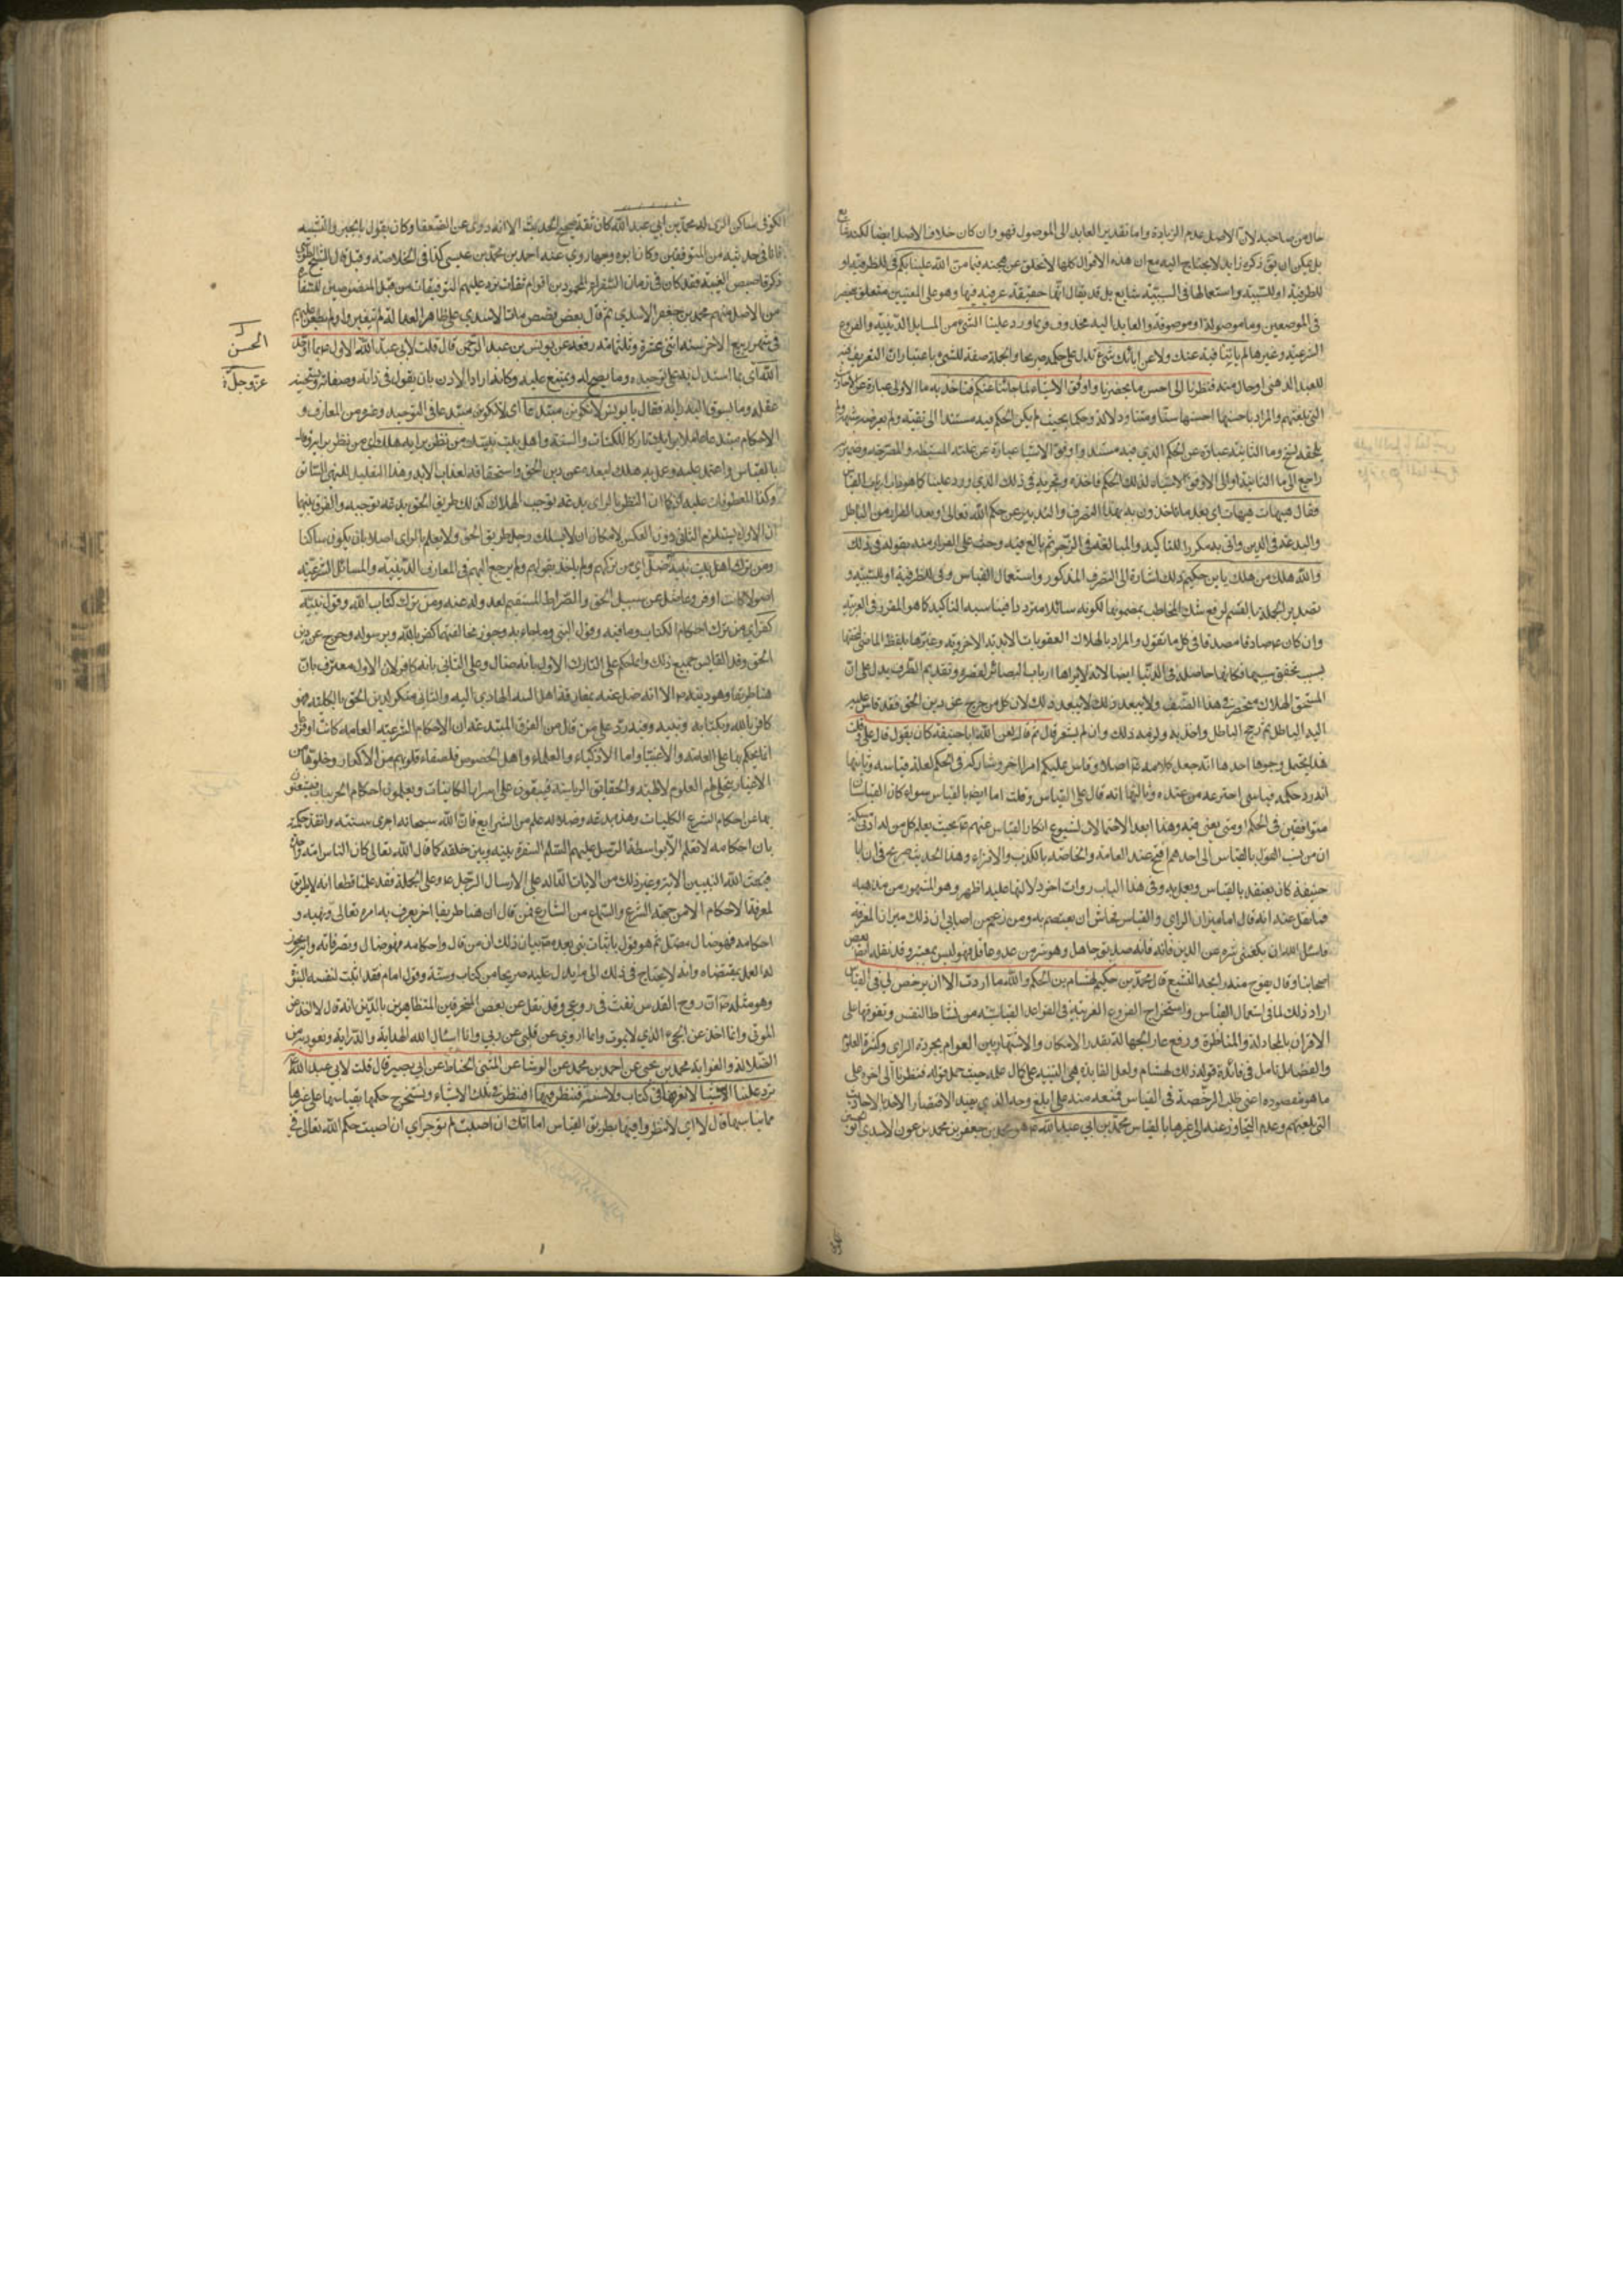 حال من صاحبه لان الاصل عدم الزيادة واما تقدير العايد الى الموصول فهو وان كان خلاف الاصل ايضا لكنه شايع
بل يمكن ان يق ذكره زايد لا يحتاج اليه مع ان هذه الاقوال كلها لا تخلو عن هجنة فيما من الله علينا بكم في للظرفية او
للظرفية او للسببية واستعمالها في السببية شايع بل قد يقال انها حقيقة عرفية فيها وهو على المعنيين متعلق
في الموضعين وما موصولة او موصوفة والعايد اليه محذوف فربما ورد علينا الشيء من المسايل الدينية والفروع
الشرعية وغيرها لم ياتنا فيه عنك ولا عن ابائك شيء تدل على حكمه صريحا والجملة صفة للشيء باعتبار ان التعريف فيه
للعهد الذهني او حال منه فنظرنا الى احسن ما يحضرنا واوفق الاشياء لما جاءنا عنكم فناخذ به ما الاولى عبارة عن الاحاديث
التي بلغتهم والمراد باحسنها احسنها سندا ومتنا ودلالة وحكما بحيث لم يكن الحكم فيه مستندا الى تقية ولم يعرضه شبهة ولم
يلحقه نسخ وما الثانية عبارة عن الحكم الذي فيه مستند واوفق الاشياء عبارة عن علته المستنبطة والمصرحة وضمير به
راجع الى ما الثانية او الى الاوفق الاشياء لذلك الحكم فاخذه ونجريه في ذلك الذي ورد علينا كما هو داب ارباب القياس
فقال هيهات هيهات اي بعد ما تاخذون به بهذا التصرف والتدبير عن حكم الله تعالى وبعد الفرار من الباطل
والبدعة في الدين واتى به مكررا للتاكيد والمبالغة في الزجر ثم بالغ فيه وحث على الفرار منه بقوله في ذلك
والله هلك من هلك يا بن حكيم ذلك اشارة الى التصرف المذكور واستعمال القياس وفي للظرفية او للسببية و
تصدير الجملة بالقسم لرفع شك المخاطب بمضمونها لكونه سائلا مترددا فيناسبه التاكيد كما هو المقرر في العربية
وان كان عم صادقا مصدقا في كل ما يقول والمراد بالهلاك العقوبات الابدية الاخروية وعبرها بلفظ الماضي لتحققها
بسبب تحقق سببها فكانها حاصلة في الدنيا ايضا لانه لا يراها ارباب البصائر لقصره وتقديم الظرف يدل على ان
المستحق الهلاك منحصر في هذا الصنف ولا يبعد ذلك لان كل من خرج عن دين الحق فقد قاس عليه
اليه الباطل ثم رجح الباطل واخذ به ولزمه ذلك وان لم يشعر قال ثم قال لعن الله ابا حنيفة كان يقول قال علي وقلت
هذا يحتمل وجوها احدها انه جعل كلامه عم اصلا وقاس عليكم امرا اخر وشاركه في الحكم لعلة قياسه وثانيها
انه رد حكمه بقياس اخترعه من عنده وثالثها انه قال علي القياس وقلت انا ايضا بالقياس سواء كان القياسان
متوافقين في الحكم او متى يعني فيه وهذا ابعد الاحتمالات لشيوع انكار القياس عنهم عم بحيث يعلم كل من له ادنى مسكة
ان من نسب القول بالقياس الى احدهم افتضح عند العامة والخاصة بالكذب والافتراء وهذا الحديث صريح في ان ابا
حنيفة كان يعتقد بالقياس ويعمل به وفي هذا الباب روايات اخر دلالتها عليه اظهر وهو المشهور من مذهبه
فما نقل عنه انه قال اما ميزان الراي والقياس فحاش ان يعتصم به ومن زعم من اصحابي ان ذلك ميزان المعرفة
فاسئل الله ان يكفيني شره عن الدين فانه صديق جاهل وهو شر من عدو عاقل فهو ليس بمعتبر وقد نقله بعض
اصحابنا وقال يفوح منه رايحة التشيع قال محمد بن حكيم لهشام بن الحكم والله ما اردت الا ان يرخص لي في القياس
اراد ذلك لما في استعمال القياس واستخراج الفروع الغريبة في القواعد القياسية من نشاط النفس وتفوقها على
الاقران بالمجادلة والمناظرة ورفع عار الجهالة بقدر الامكان والاشتهار بين العوام بجودة الراي وكثرة العلم
والفضل تامل في فائدة قوله ذلك لهشام ولعل الفايدة هي التنبيه على كمال علمه حيث حمل قوله فنظرنا الى اخره على
ما هو مقصوده اعني طلب الرخصة في القياس فمنعه منه على ابلغ وجه الذي يفيد الاقتصار الاخذ بالاحاديث
التي بلغتهم وعدم التجاوز عنه الى غيرها بالقياس محمد بن ابي عبد الله هو محمد بن جعفر بن محمد بن عون الاسدي ابو الحسين
الكوفي ساكن الري له محمد بن ابي عبد الله كان ثقة صحيح الحديث الا انه روى عن الضعفا وكان يقول بالجبر والتشبيه
فانا في حديثه من المتوقفين وكان ابوه وجها روى عنه احمد بن محمد بن عيسى كذا في الخلاصة وقيل قال الشيخ الطوسي
ذكر اقاصيص الغيبة فقد كان في زمان السفراء المحمودين اقوام ثقات ترد عليهم التوقيعات من قبل المنصوبين للسفارة
من الاصل منهم محمد بن جعفر الاسدي ثم قال بعض قصص مات الاسدي على ظاهر العدالة لم يتغير ولم يطعن عليه
في شهر ربيع الاخر سنة اثنتي عشرة وثلثمائة رفعه عن يونس بن عبد الرحمن قال قلت لابي عبد الله الاول عم بما اوحد
الله اي بما استدل به على توحيده وما يصح له ويمتنع عليه وكانه اراد الاذن بان يقول في ذاته وصفاته ويستحسنه
عقله وما يسوق اليه رايه فقال يا يونس لا تكونن مبتدعا اي لا تكونن مبتدعا في التوحيد وغيره من المعارف و
الاحكام مبتدعا عاملا برايك تاركا للكتاب والسنة واهل بيت نبيك من نظر برايه هلك اي من نظر برايه وقال
بالقياس واعتمد عليه وعمل به هلك لبعده عن دين الحق واستحقاقه لعقاب الابد وهذا التعليل للنهي السابق
وكذا المعطوفات عليه فكما ان النظر بالراي بدعة توجب الهلاك كذلك طريق الحق بدعة توجبه والفرق بينهما
ان الاول يستلزم الثاني دون العكس لامكان ان لا يسلك رجل طريق الحق ولا يعلم بالراي اصلا بان يكون ساكنا
ومن ترك اهل بيت نبيه ضل اي من تركهم ولم ياخذ بقولهم ولم يرجع اليهم في المعارف الدينية والمسائل الشرعية
اصولا كانت او فروعا ضل عن سبيل الحق والصراط المستقيم لعدوله عنه ومن ترك كتاب الله وقول نبيه
كفر اي من ترك احكام الكتاب وما فيه وقول النبي وما جاء به وجوز مخالفتهما كفر بالله وبرسوله وخرج عن دين
الحق وقد القايس جميع ذلك وانما حكم على التارك الاول بانه ضال وعلى الثاني بانه كافر لان الاول معترف بان
هنا طريقا وهو ديننا الا انه ضل عنه بمفارقة اهل البيت الهادي اليه والثاني منكر لدين الحق بالكلية فهو
كافر بالله وبكتابه ونبيه وفيه رد على من قال من الفرق المبتدعة ان الاحكام الشرعية العامة كانت او فروعا
انما يحكم بها على العامة والاغبياء واما الاذكياء والعلماء واهل الخصوص فلصفاء قلوبهم من الاكدار وخلوها من
الاغيار يتجلى لهم العلوم الالهية والحقايق الربانية فيقفون على اسرار الكاينات ويعلمون احكام الجزييات فيستغنون
بها عن احكام الشرع الكليات وهذه بدعة وضلالة علم من الشرايع فان الله سبحانه اجرى سنته وانفذ حكمه
بان احكامه لا تعلم الا بواسطة الرسل عليهم السلم السفرة بينه وبين خلقه كما قال الله تعالى كان الناس امة واحدة
فبعث الله النبيين الاية وغير ذلك من الايات الدالة على الارسال الرسل عم وعلى الجملة فقد علمنا قطعا انه لا طريق
لمعرفة الاحكام الا من جهة الشرع والسماع من الشارع فمن قال ان هنا طريقا اخر يعرف به امره تعالى ونهيه و
احكامه فهو ضال مضل ثم هو قول باثبات نبي بعده ص بيان ذلك ان من قال واحكامه فهو ضال وتصرفاته وانه يجوز
له العمل بمقتضاه وانه لا يحتاج في ذلك الى ما يدل عليه صريحا من كتاب وسنة وقول امام فقد اثبت لنفسه النبوة
وهو مثله ص ان روح القدس نفث في روعي وقد نقل عن بعض المنحرفين المتظاهرين بالدين انه قال لا اخذ عن
الموتى وانما اخذ عن الحي الذي لا يموت وانما اروي عن قلبي عن ربي وانا اسئال الله الهداية والدراية ونعوذ به من
الضلالة والغواية محمد بن يحيى عن احمد بن محمد عن الوشا عن المثنى الحناط عن ابي بصير قال قلت لابي عبد الله ع
ترد علينا الاشياء لا نعرفها في كتاب ولا سنة فننظر فيها افننظر في تلك الاشياء ونستخرج حكمها بقياسها على غيرها
مما يناسبها قال لا اي لا تنظروا فيها بطريق القياس اما انك ان اصبت لم توجر اي ان اصبت حكم الله تعالى في
الحسن
عز وجل